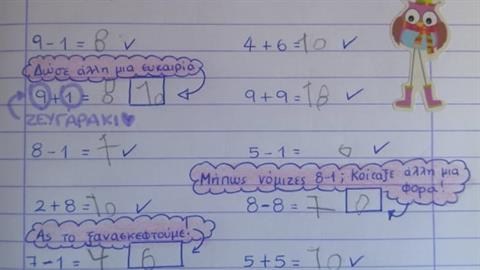 9 - 1 = 8 ✓
4 + 6 = 10 ✓
Δώσε άλλη μια ευκαιρία
9 + 1 = 8 10
9 + 9 = 18 ✓
ΖΕΥΓΑΡΑΚΙ♥
8 - 1 = 7 ✓
5 - 1 = 6 ✓
Μήπως νόμιζες 8-1; Κοίταξε άλλη μια φορά!
2 + 8 = 10 ✓
8 - 8 = 7 0
Ας το ξανασκεφτούμε.
7 - 1 = 4 6
5 + 5 = 10 ✓